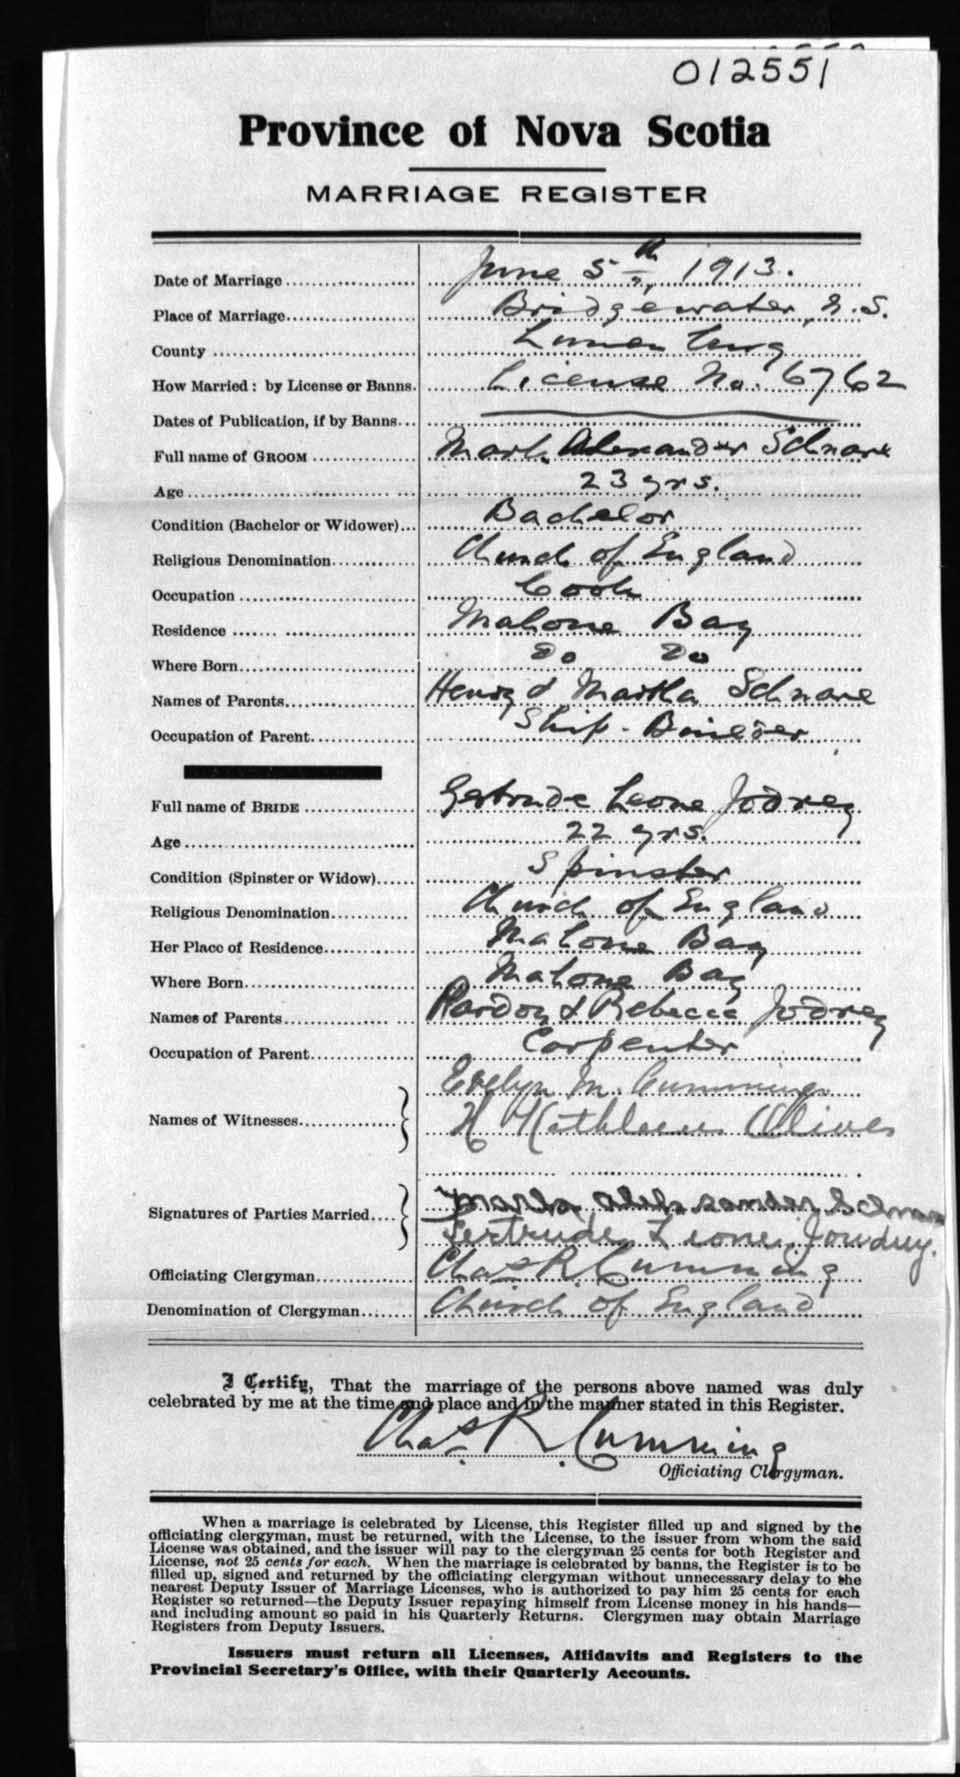 012551
Province of Nova Scotia
MARRIAGE REGISTER
Date of Marriage June 5th, 1913.
Place of Marriage Bridgewater, N.S.
County Lunenburg
How Married: by License or Banns. License No. 6762
Dates of Publication, if by Banns
Full name of GROOM Mark Alexander Schnare
Age 23 yrs.
Condition (Bachelor or Widower) Bachelor
Religious Denomination Church of England
Occupation Cook
Residence Mahone Bay
Where Born Do Do
Names of Parents Henry & Martha Schnare
Occupation of Parent Ship-Builder
Full name of BRIDE Gertrude Leone Jodrey
Age 22 yrs.
Condition (Spinster or Widow) Spinster
Religious Denomination Church of England
Her Place of Residence Mahone Bay
Where Born Mahone Bay
Names of Parents & Rebecca Jodrey
Occupation of Parent Carpenter
Evelyn M. Cumming
Names of Witnesses H Kathleen Oliver
Signatures of Parties Married Schnare
Gertrude Leone Jowdrey.
Officiating Clergyman Chas R. Cumming
Denomination of Clergyman Church of England
I Certify, That the marriage of the persons above named was duly
celebrated by me at the time and place and in the manner stated in this Register.
Chas. R. Cumming
Officiating Clergyman.
When a marriage is celebrated by License, this Register filled up and signed by the
officiating clergyman, must be returned, with the License, to the issuer from whom the said
License was obtained, and the issuer will pay to the clergyman 25 cents for both Register and
License, not 25 cents for each. When the marriage is celebrated by banns, the Register is to be
filled up, signed and returned by the officiating clergyman without unnecessary delay to the
nearest Deputy Issuer of Marriage Licenses, who is authorized to pay him 25 cents for each
Register so returned—the Deputy Issuer repaying himself from License money in his hands—
and including amount so paid in his Quarterly Returns. Clergymen may obtain Marriage
Registers from Deputy Issuers.
Issuers must return all Licenses, Affidavits and Registers to the
Provincial Secretary's Office, with their Quarterly Accounts.